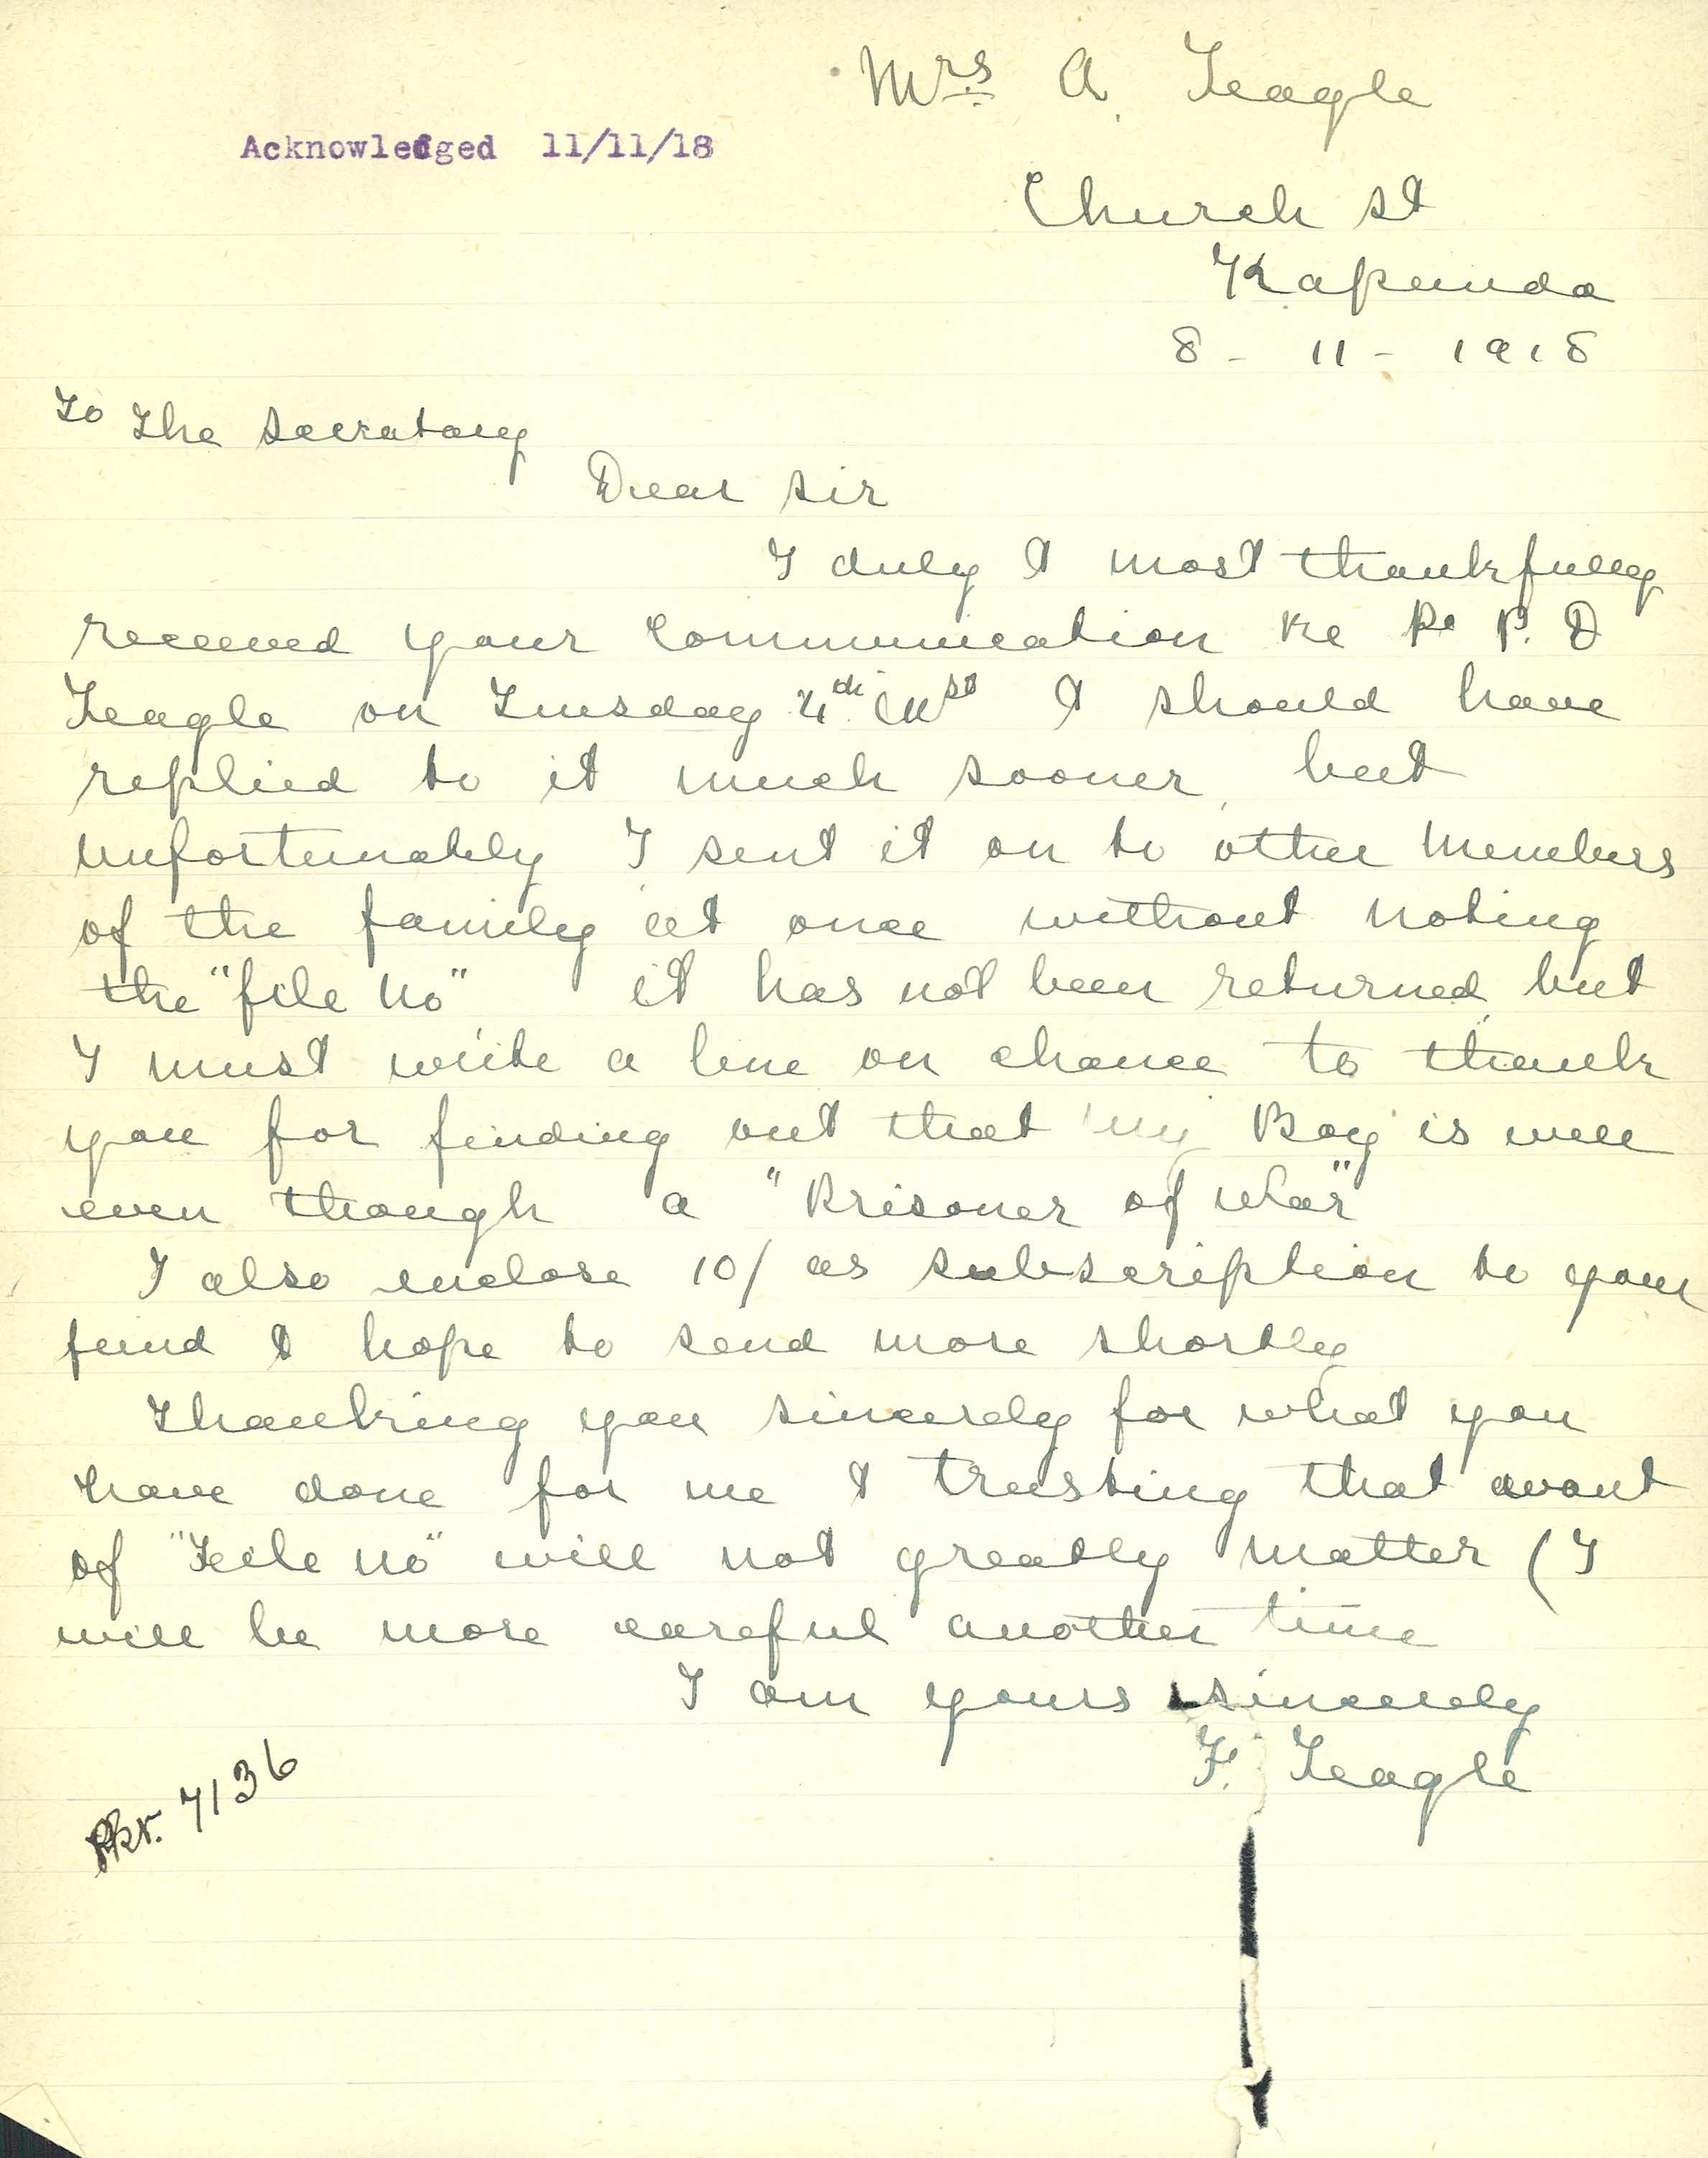 Mrs A. Teagle
Acknowledged 11/11/18
Church st
Kapunda
8 - 11 - 1918
To The Secratary
Dear Sir
I duly & most thankfully
received your communication re Pte P. D
Teagle on Tuesday 4th Inst & should have
replied to it much sooner, but
unfortunately I sent it on to other members
of the family at once without noting
the "file No" it has not been returned, but
I must write a line on chance to thank
you for finding out that my Boy is well
even though a "Prisoner of War"
I also enclose 10/ as subscription to your
fund & hope to send more shortly
Thanking you sincerely for what you
have done for me & trusting that want
of "File No" will not greatly matter (I
will be more careful another time
I am yours sincerely
F. Teagle
Pkt. 7136